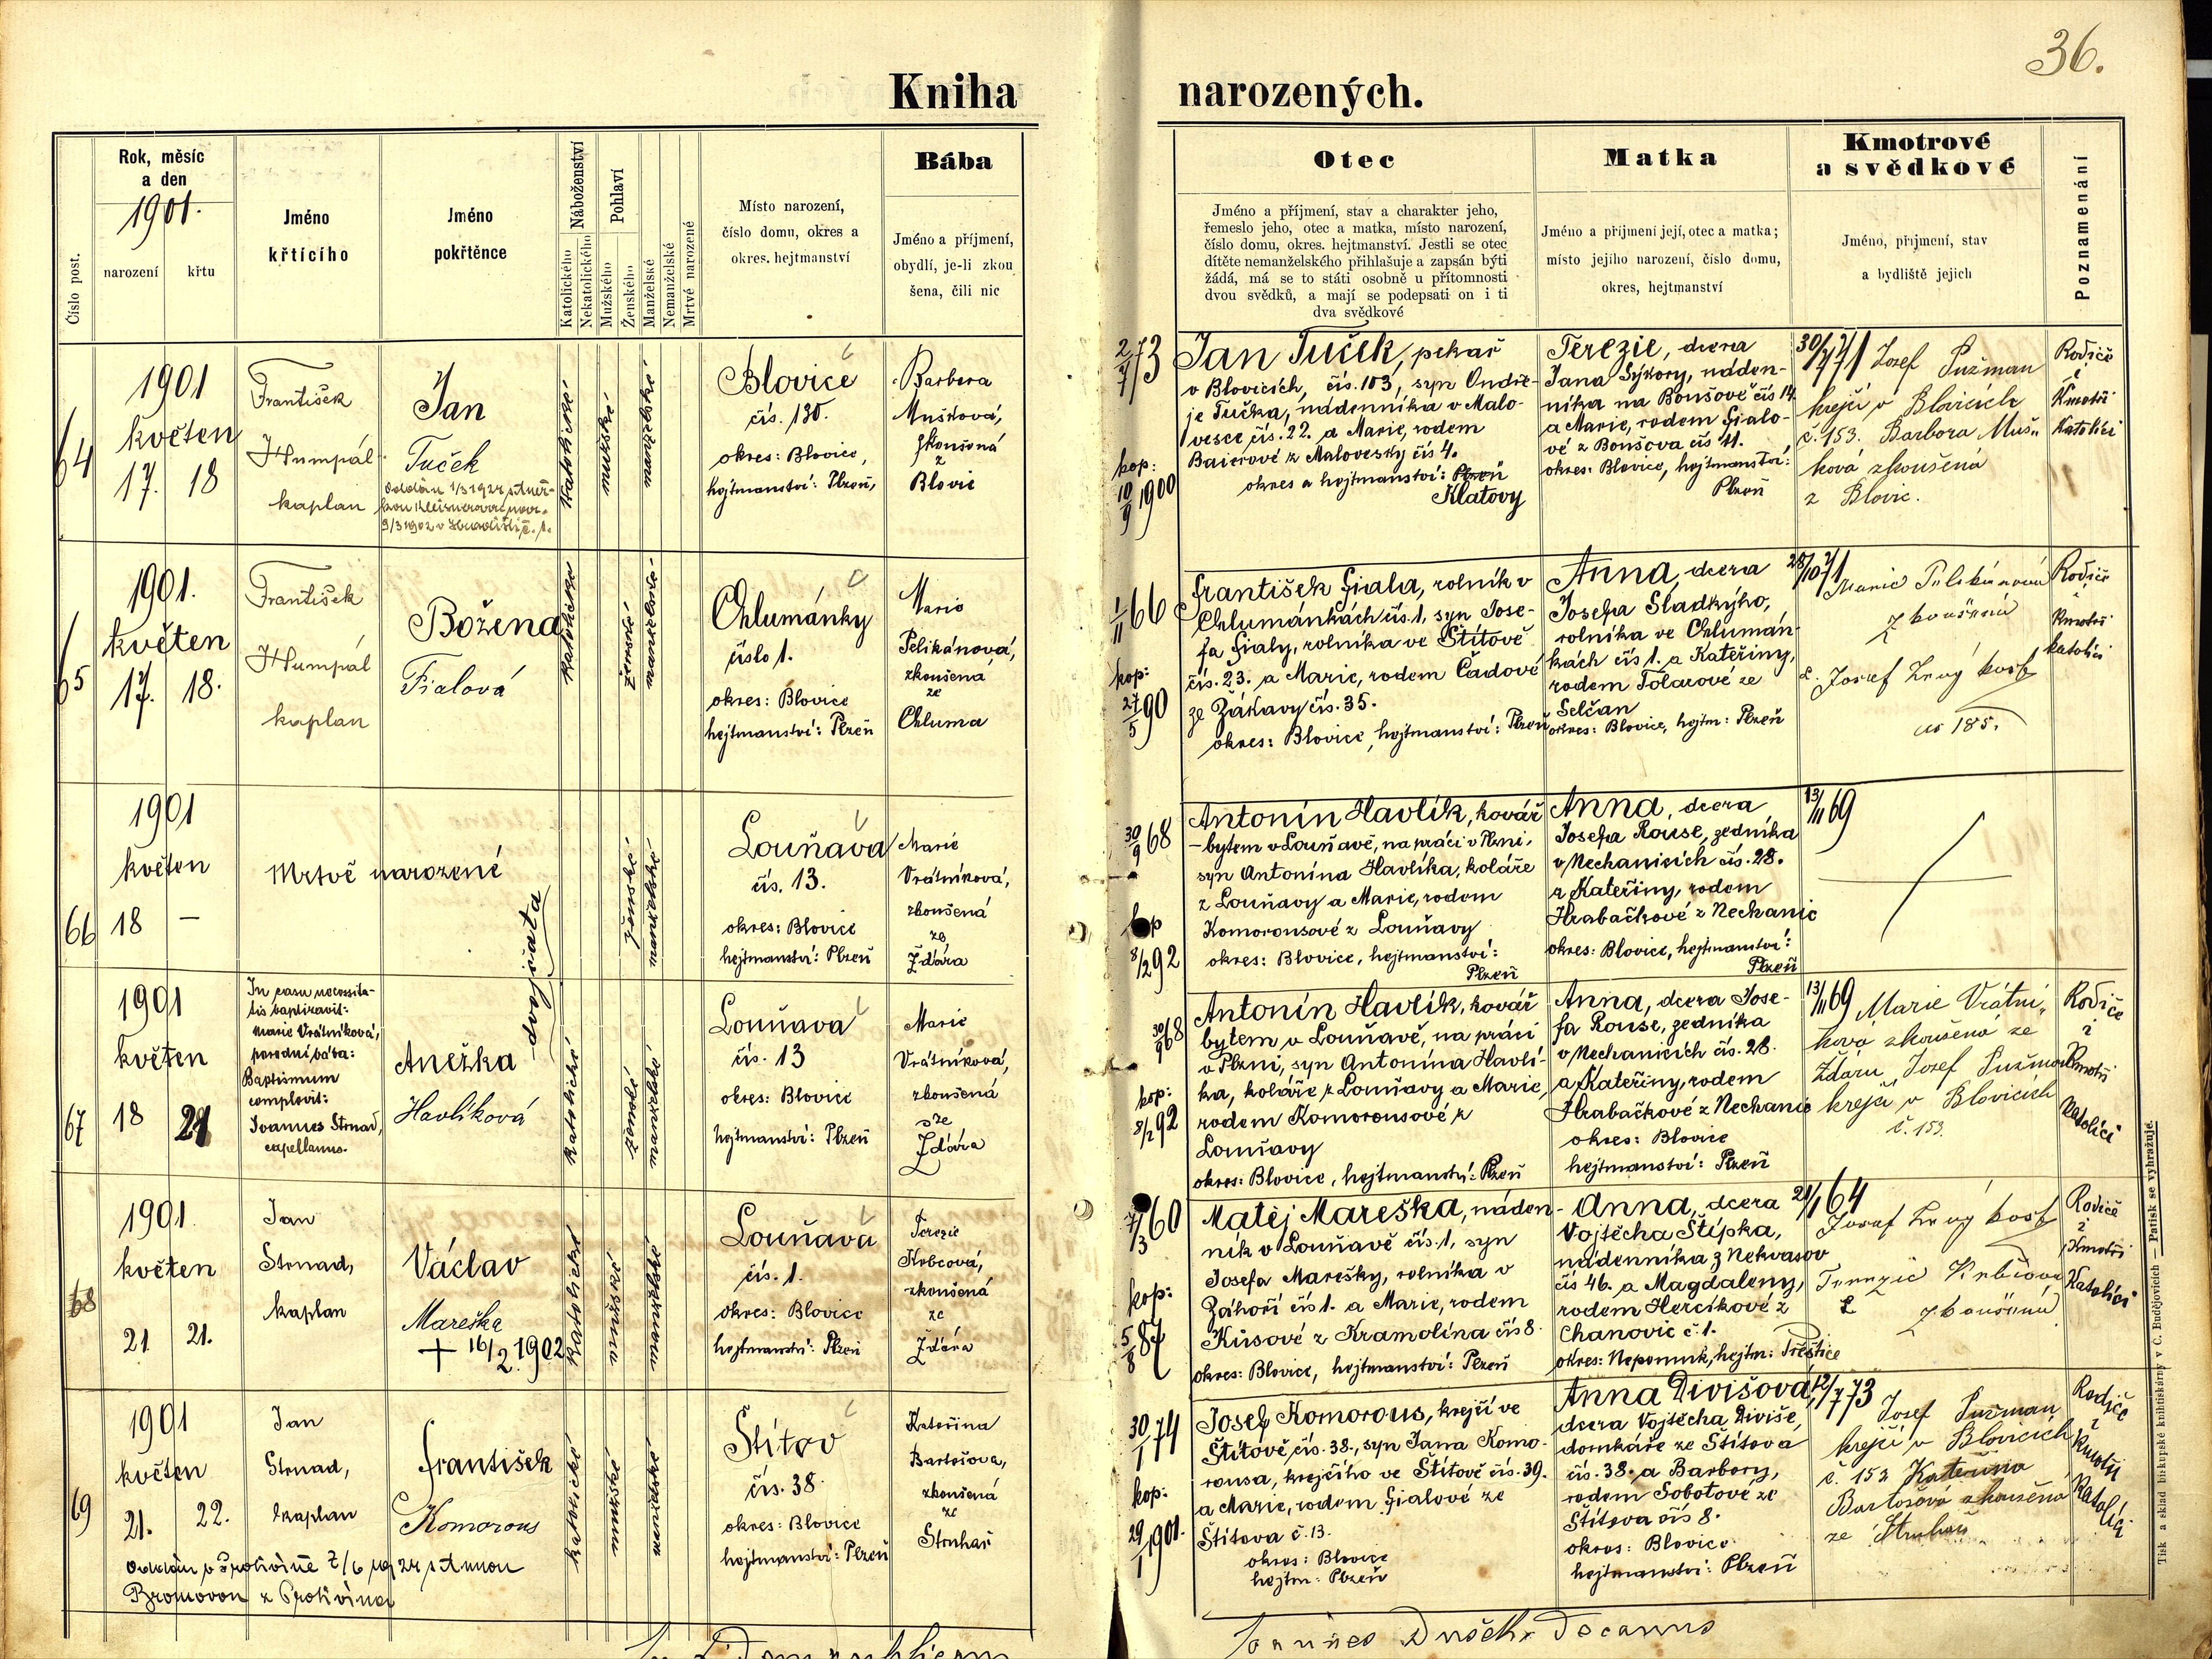 36.
Kniha narozených.
Číslo post.
Rok, měsíc
a den
1901.
narození
křtu
Jméno
křtícího
Jméno
pokřtěnce
Náboženství
Katolického
Nekatolického
Pohlaví
Mužského
Ženského
Manželské
Nemanželské
Mrtvě narozené
Místo narození,
číslo domu, okres a
okres. hejtmanství
Bába
Jméno a příjmení,
obydlí, je-li zkou
šena, čili nic
Otec
Jméno a příjmení, stav a charakter jeho,
řemeslo jeho, otec a matka, místo narození,
číslo domu, okres. hejtmanství. Jestli se otec
dítěte nemanželského přihlašuje a zapsán býti
žádá, má se to státi osobně u přítomnosti
dvou svědků, a mají se podepsati on i ti
dva svědkové
Matka
Jméno a příjmení její, otec a matka;
místo jejího narození, číslo domu,
okres, hejtmanství
Kmotrové
a svědkové
Jméno, příjmení, stav
a bydliště jejich
Poznamenání
64
1901
květen
17. 18
František
Humpál
kaplan
Jan
Tuček
katolické
mužské
manželské
Blovice
čís. 130.
okres: Blovice,
hejtmanství: Plzeň,
Barbora
Mušková,
zkoušená
z
Blovic
2/7 73
kop:
10/9 1900
Jan Tuček, pekař
v Blovicích, čís. 103, syn Ondře-
je Tučka, nádenníka v Malo-
vesce čís. 22. a Marie, rodem
Baierové z Malovesky čís 4.
okres a hejtmanství: Plzeň
Klatovy
Terezie, dcera
Jana Sýkory, náden-
níka na Bonšově čís 14.
a Marie, rodem Fialo-
vé z Bonšova čís 11.
okres: Blovice, hejtmanství:
Plzeň
30/7 71 Josef Pužman
krejčí v Blovicích
č. 153. Barbora Muš-
ková zkoušená
z Blovic.
Rodiče
i
Kmotři
Katolíci
65
1901.
květen
17. 18.
František
Humpál
kaplan
Božena
Fialová
katolické
ženské
manželské
Chlumánky
číslo 1.
okres: Blovice
hejtmanství: Plzeň
Marie
Pelikánová,
zkoušená
ze
Chluma
1/11 66
kop:
27/5 90
František Fiala, rolník v
Chlumánkách čís. 1, syn Jose-
fa Fialy, rolníka ve Štítově
čís. 23. a Marie, rodem Čadové
ze Žákavy čís. 35.
okres: Blovice, hejtmanství: Plzeň
Anna, dcera
Josefa Sladkýho,
rolníka ve Chlumán-
kách čís 1. a Kateřiny,
rodem Tolarové ze
Selčan
okres: Blovice, hejtm: Plzeň
28/10 71
Marie Pelikánová
zkoušená
Rodiče
i
Kmotři
katolíci
66
1901
květen
18 —
Mrtvě narozené
dvojčata
ženské
manželské
Louňava
čís. 13.
okres: Blovice
hejtmanství: Plzeň
Marie
Vrátníková,
zkoušená
ze
Ždára
30/9 68
kop
8/2 92
Antonín Havlík, kovář
- bytem v Louňavě, na práci v Plzni,
syn Antonína Havlíka, koláře
z Louňavy a Marie, rodem
Komorousové z Louňavy
okres: Blovice, hejtmanství:
Plzeň
Anna, dcera
Josefa Rouse, zedníka
v Nechanicích čís. 28.
a Kateřiny, rodem
Hrabačkové z Nechanic
okres: Blovice, hejtmanství:
Plzeň
13/11 69
67
1901
květen
18 21
In casu necessita-
tis baptizavit:
Marie Vrátníková,
porodní bába:
Baptismum
complevit:
Joannes Strnad,
capellanus.
Anežka
Havlíková
katolické
ženské
manželské
Louňava
čís. 13
okres: Blovice
hejtmanství: Plzeň
Marie
Vrátníková,
zkoušená
ze
Ždára
30/9 68
kop:
8/2 92
Antonín Havlík, kovář
bytem v Louňavě, na práci
v Plzni, syn Antonína Havlí-
ka, koláře z Louňavy a Marie,
rodem Komorousové z
Louňavy
okres: Blovice, hejtmanství: Plzeň
Anna, dcera Jose-
fa Rouse, zedníka
v Nechanicích čís. 28.
a Kateřiny, rodem
Hrabačkové z Nechanic
okres: Blovice
hejtmanství: Plzeň
13/11 69 Marie Vrátní-
ková zkoušená ze
Ždáru Josef Pužman
krejčí v Blovicích
č. 153.
Rodiče
i
Kmotři
Katolíci
68
1901.
květen
21 21.
Jan
Strnad,
kaplan
Václav
Mareška
+ 16/2. 1902
katolické
mužské
manželské
Louňava
čís. 1.
okres: Blovice
hejtmanství: Plzeň
Terezie
Krbcová,
zkoušená
ze
Ždára
7/3 60
kop:
5/8 87
Matěj Mareška, náden-
ník v Louňavě čís. 1, syn
Josefa Marešky, rolníka v
Záhoří čís 1. a Marie, rodem
Kůsové z Kramolína čís 8.
okres: Blovice, hejtmanství: Plzeň
Anna, dcera
Vojtěcha Štípka,
nádenníka z Nekvasov
čís 46. a Magdaleny,
rodem Hercíkové z
Chanovic č. 1.
okres: Nepomuk, hejtm: Přeštice
21/1 64
Terezie
zkoušená
Rodiče
i
Kmotři
Katolíci
69
1901
květen
21. 22.
Jan
Strnad,
kaplan
František
Komorous
katolické
mužské
manželské
Štítov
čís. 38.
okres: Blovice
hejtmanství: Plzeň
Kateřina
Bartošova,
zkoušená
ze
Struhař
Oddán v Protivíně 7/6 1924 s Annou
z Protivína
30/1 74
kop:
29/1 1901.
Josef Komorous, krejčí ve
Štítově, čís. 38., syn Jana Komo-
rousa, krejčího ve Štítově čís. 39.
a Marie, rodem Fialové ze
Štítova č. 13.
okres: Blovice
hejtm: Plzeň
Anna Divišová,
dcera Vojtěcha Diviše,
domkáře ze Štítova
čís. 38. a Barbory,
rodem Sobotové ze
Štítova čís 8.
okres: Blovice
hejtmanství: Plzeň
12/7 73
Josef Pužman
krejčí v Blovicích
č. 153 Kateřina
Bartošová zkoušená
ze Struhař
Rodiče
i
Kmotři
Katolíci
Joannes Dušek Decanus
Tisk a sklad biskupské knihtiskárny v C. Budějovicích — Patisk se vyhražuje.